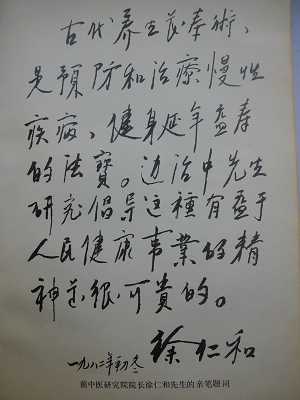 古代养生长拳術，
是預防和治療慢性
疾病、健身延年益寿
的法寶。边治中先生
研究倡导这種有益于
人民健康事業的精
神是很可貴的。
徐仁和
一九八二年初冬
前中医研究院院长徐仁和先生的亲笔题词